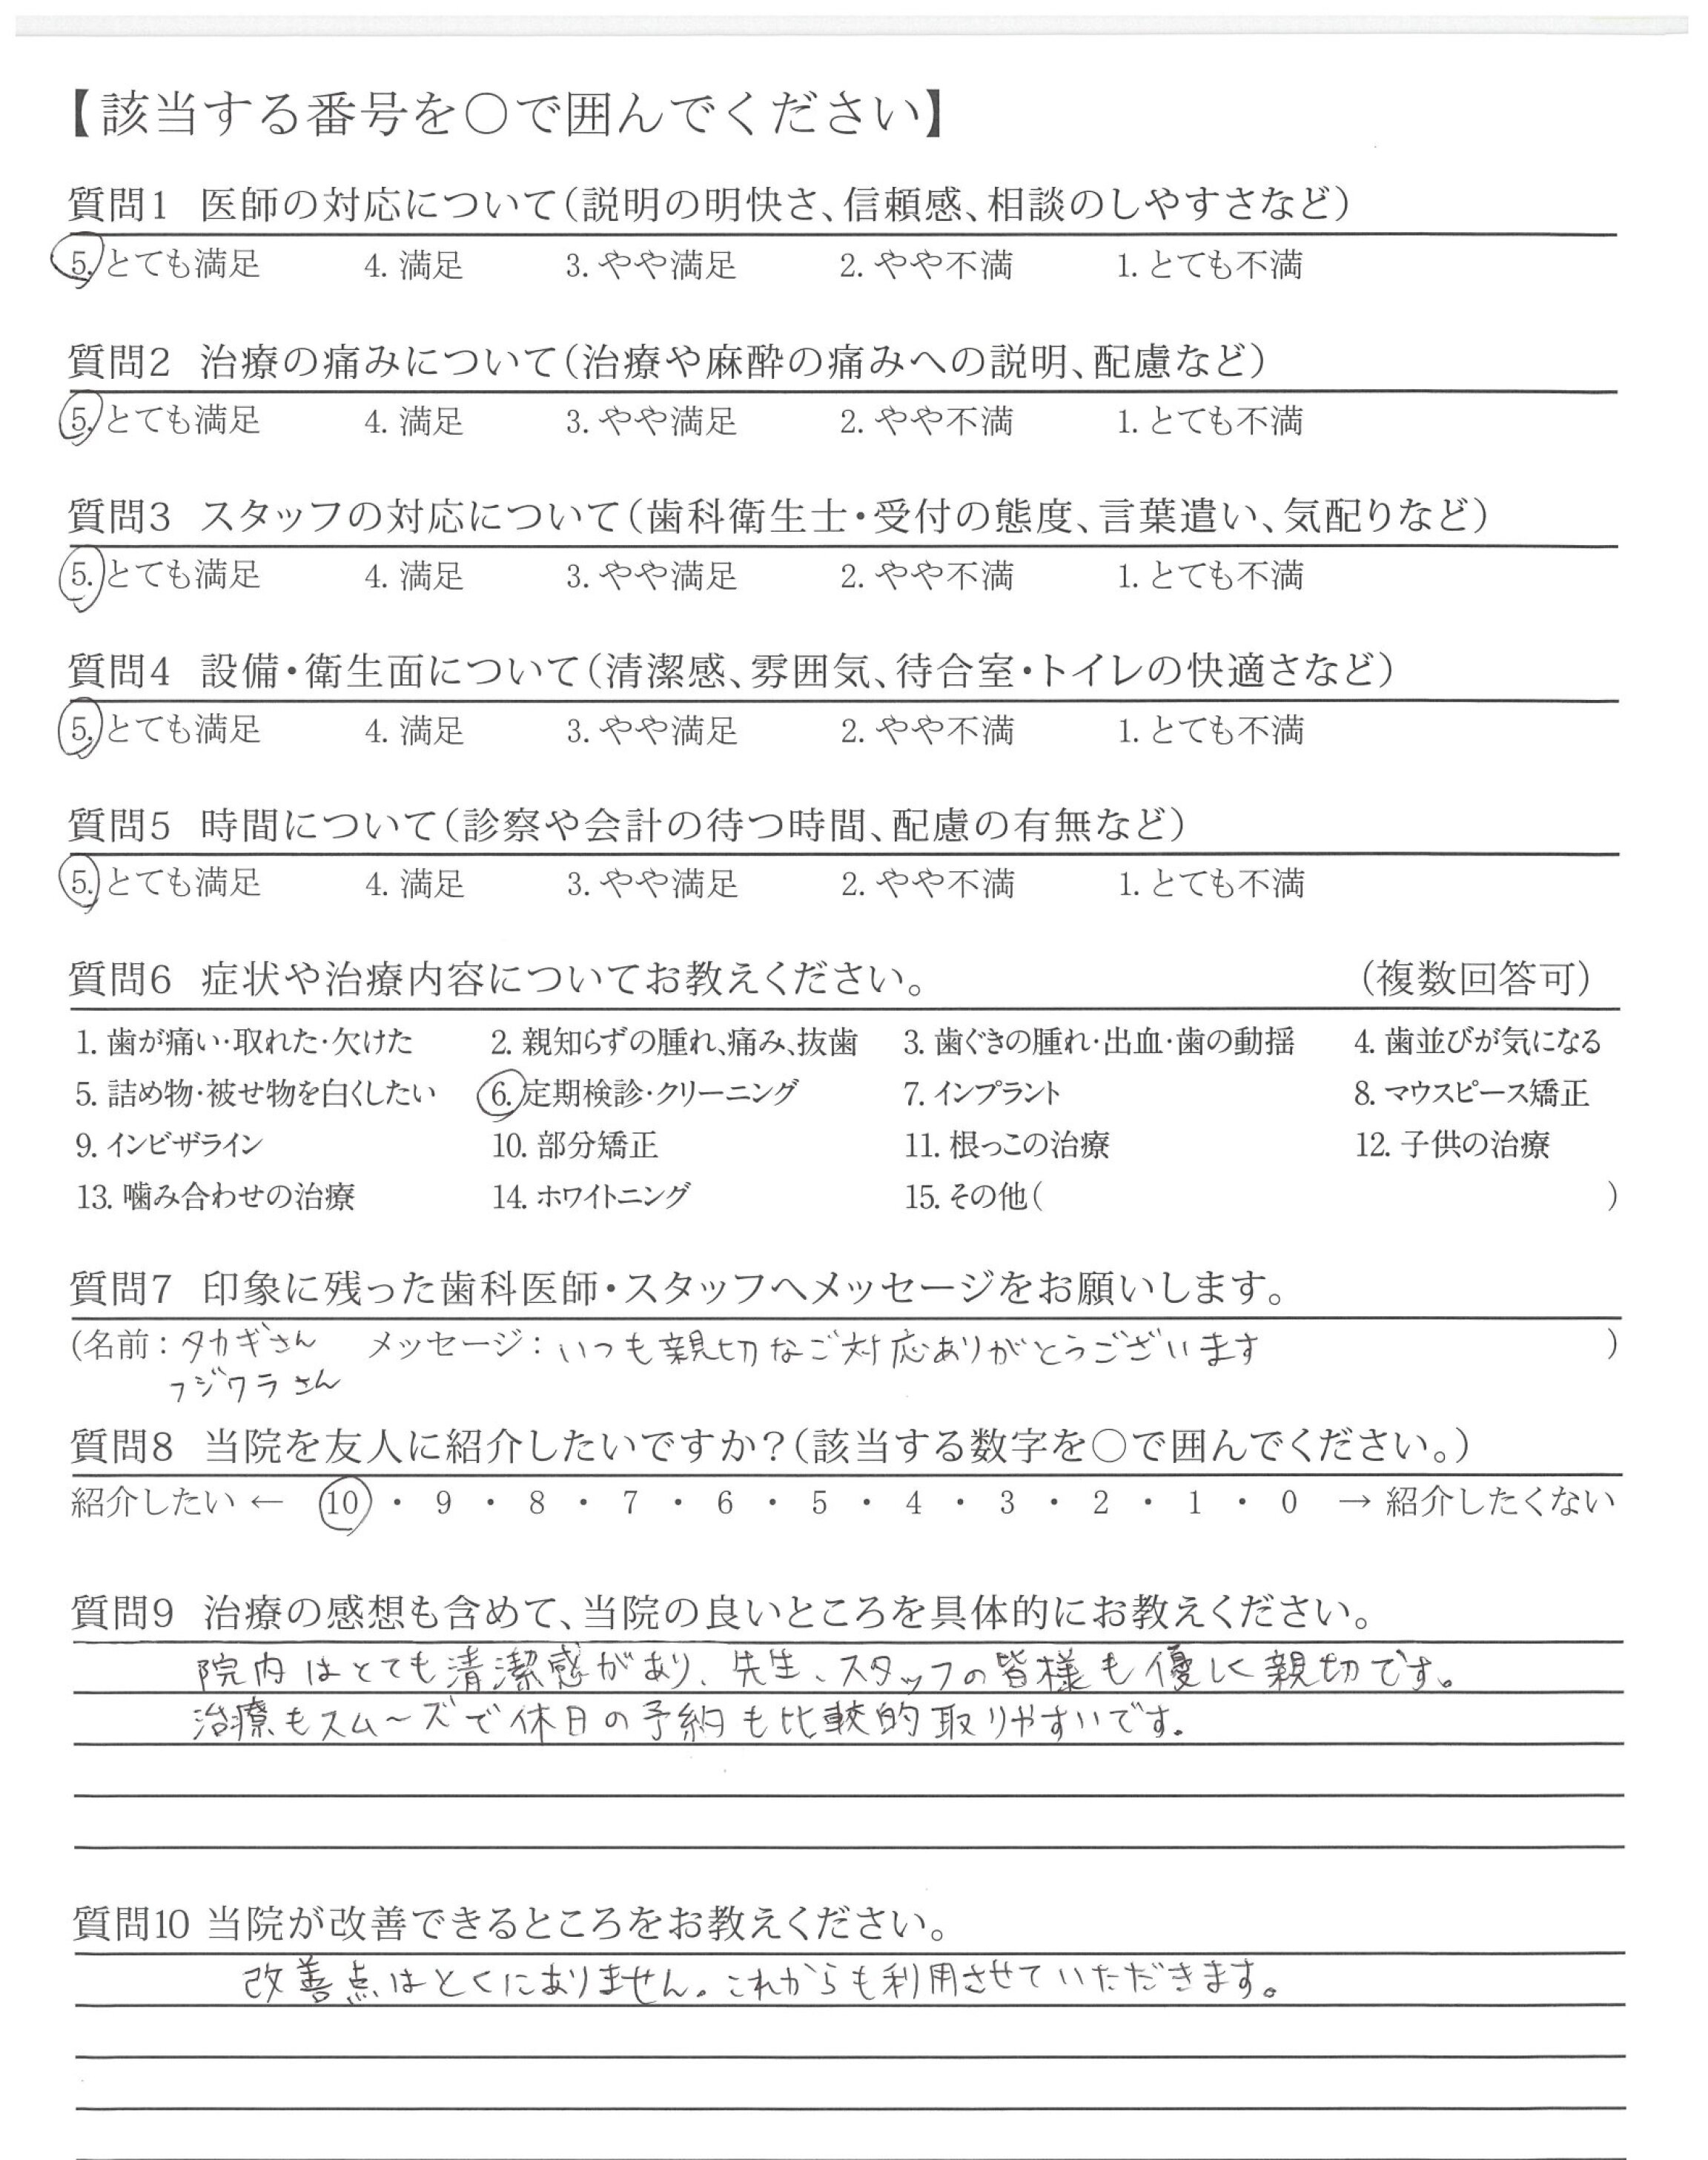 【該当する番号を〇で囲んでください】
質問1 医師の対応について(説明の明快さ、信頼感、相談のしやすさなど)
5. とても満足 4. 満足 3. やや満足 2. やや不満 1. とても不満
質問2 治療の痛みについて(治療や麻酔の痛みへの説明、配慮など)
5. とても満足 4. 満足 3. やや満足 2. やや不満 1. とても不満
質問3 スタッフの対応について(歯科衛生士・受付の態度、言葉遣い、気配りなど)
5. とても満足 4. 満足 3. やや満足 2. やや不満 1. とても不満
質問4 設備・衛生面について(清潔感、雰囲気、待合室・トイレの快適さなど)
5. とても満足 4. 満足 3. やや満足 2. やや不満 1. とても不満
質問5 時間について(診察や会計の待つ時間、配慮の有無など)
5. とても満足 4. 満足 3. やや満足 2. やや不満 1. とても不満
質問6 症状や治療内容についてお教えください。 (複数回答可)
1. 歯が痛い・取れた・欠けた 2. 親知らずの腫れ、痛み、抜歯 3. 歯ぐきの腫れ・出血・歯の動揺 4. 歯並びが気になる
5. 詰め物・被せ物を白くしたい 6. 定期検診・クリーニング 7. インプラント 8. マウスピース矯正
9. インビザライン 10. 部分矯正 11. 根っこの治療 12. 子供の治療
13. 噛み合わせの治療 14. ホワイトニング 15. その他( )
質問7 印象に残った歯科医師・スタッフへメッセージをお願いします。
(名前：タカギさん メッセージ：いつも親切なご対応ありがとうございます )
フジワラさん
質問8 当院を友人に紹介したいですか？(該当する数字を〇で囲んでください。)
紹介したい ← 10 ・ 9 ・ 8 ・ 7 ・ 6 ・ 5 ・ 4 ・ 3 ・ 2 ・ 1 ・ 0 → 紹介したくない
質問9 治療の感想も含めて、当院の良いところを具体的にお教えください。
院内はとても清潔感があり、先生、スタッフの皆様も優しく親切です。
治療もスム〜ズで休日の予約も比較的取りやすいです。
質問10 当院が改善できるところをお教えください。
改善点はとくにありません。これからも利用させていただきます。